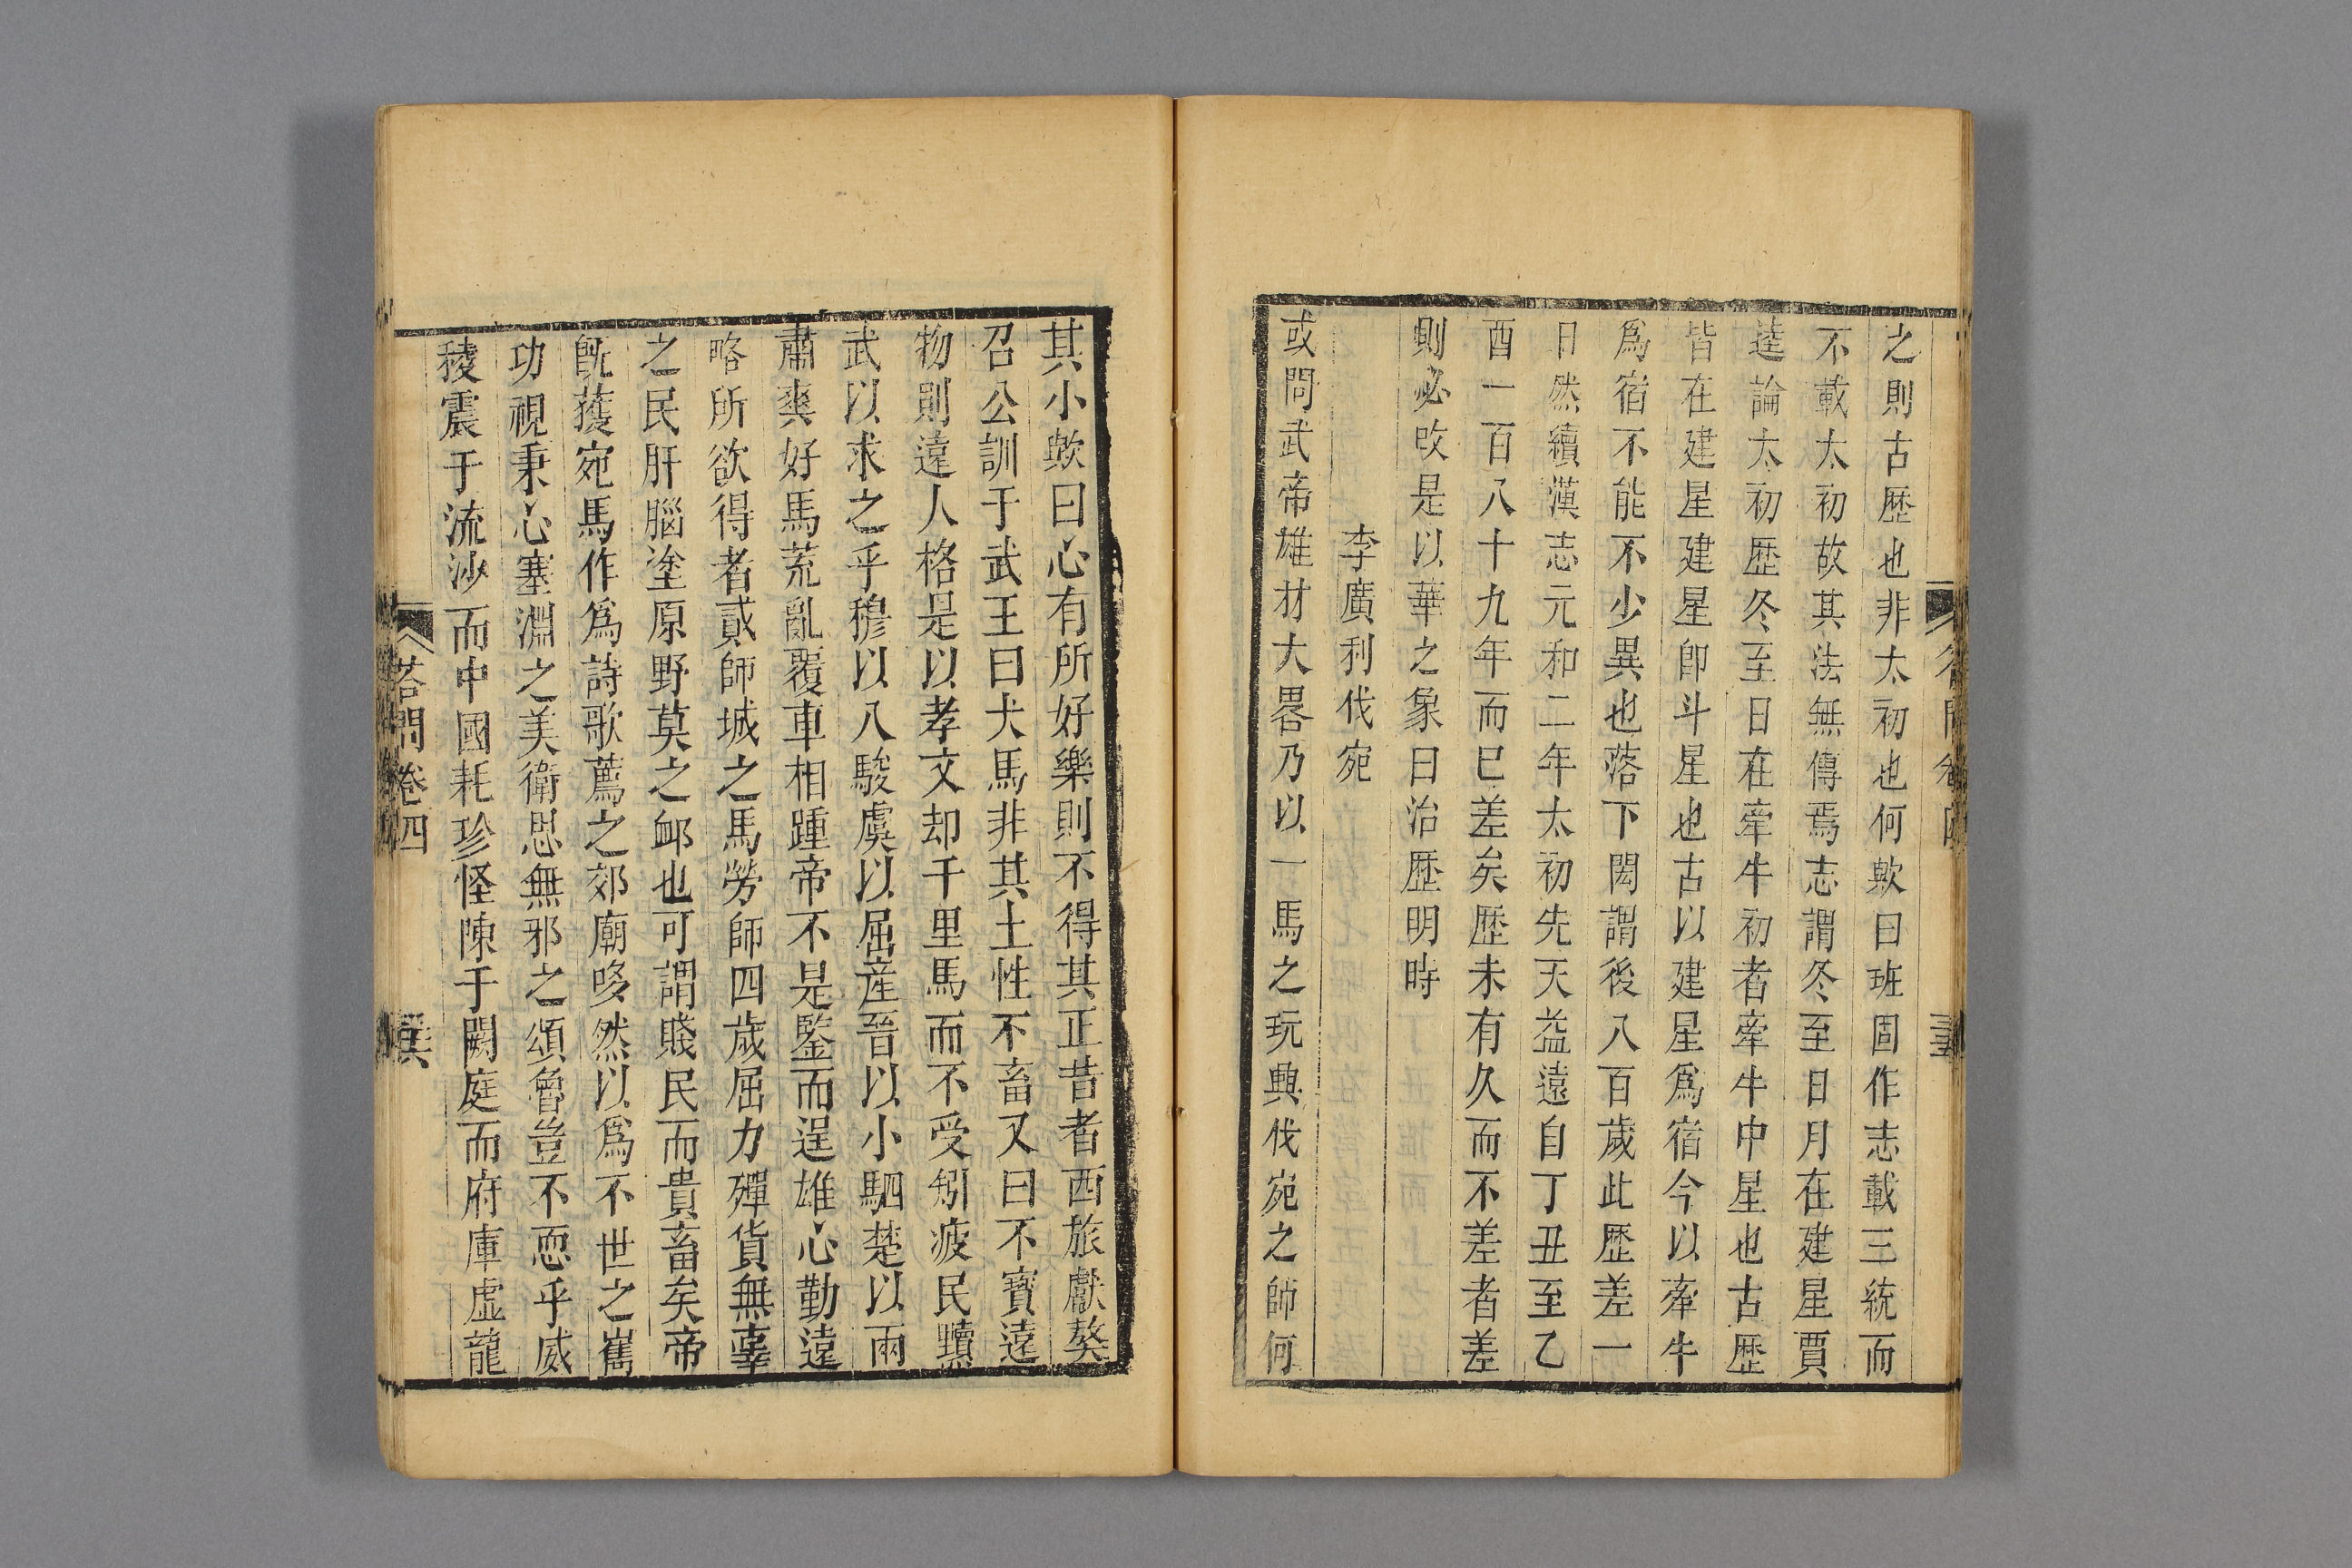 之則古歷也非太初也何歟曰班固作志載三統而
不載太初故其法無傳焉志謂冬至日月在建星賈
逵論太初歷冬至日在牽牛初者牽牛中星也古歷
皆在建星建星即斗星也古以建星爲宿今以牽牛
爲宿不能不少異也落下閎謂後八百歲此歷差一
日然續漢志元和二年太初先天益遠自丁丑至乙
酉一百八十九年而已差矣歷未有久而不差者差
則必改是以華之象曰治歷明時
李廣利伐宛
或問武帝雄材大畧乃以一馬之玩興伐宛之師何
其小歟曰心有所好樂則不得其正昔者西旅獻獒
召公訓于武王曰犬馬非其土性不畜又曰不寶遠
物則遠人格是以孝文却千里馬而不受矧疲民黷
武以求之乎穆以八駿虞以屈產晉以小駟楚以兩
肅爽好馬荒亂覆車相踵帝不是鑒而逞雄心勤遠
略所欲得者貳師城之馬勞師四歲屈力殫貨無辜
之民肝腦塗原野莫之卹也可謂賤民而貴畜矣帝
旣獲宛馬作爲詩歌薦之郊廟哆然以爲不世之雋
功視秉心塞淵之美衛思無邪之頌魯豈不恧乎威
稜震于流沙而中國耗珍怪陳于闕庭而府庫虛龍
荅問卷四